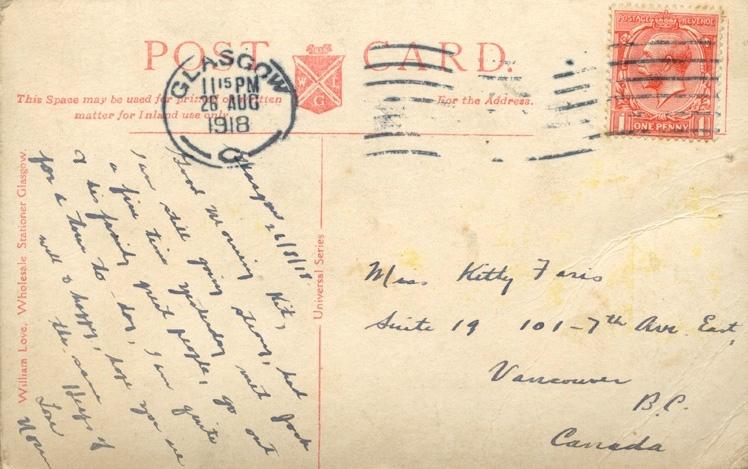 POST CARD.
POSTAGE REVENUE
ONE PENNY
GLASGOW
11 15 PM
26 AUG
1918
W G
This Space may be used for printed or written
matter for Inland use only.
For the Address.
William Love, Wholesale Stationer Glasgow.
Universal Series
Glasgow 26/8/18
Good Morning Kit,
I am still going strong, had
a fine time yesterday met Jack
& his family great people, go out
for a tour to day, I am quite
well & happy, hope you are
the same Heaps of
Love
Miss Kitty Faris
Suite 19 101-7th Ave East,
Vancouver
B.C.
Canada